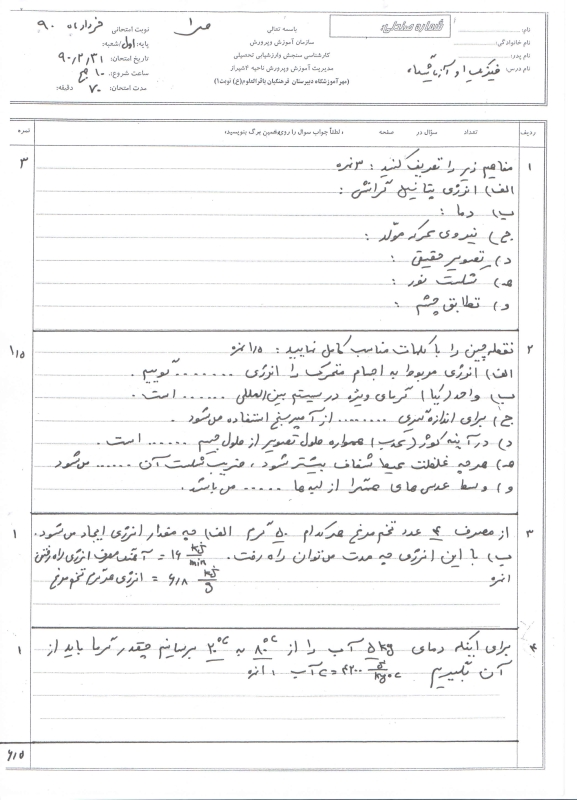 باسمه تعالی
سازمان آموزش وپرورش
کارشناسی سنجش وارزشیابی تحصیلی
مدیریت آموزش وپرورش ناحیه ۴شیراز
(مهرآموزشگاه دبیرستان فرهنگیان باقرالعلوم(ع) نوبت۱)
شماره صندلی:
نام:
نام خانوادگی:
نام پدر:
نام درس: فیزیک ۱ و آزمایشگاه
نوبت امتحانی: خرداد ماه ۹۰
پایه: اول/شعبه:
تاریخ امتحان: ۹۰/۳/۳۱
ساعت شروع: ۱۰ صبح
مدت امتحان: ۷۰ دقیقه:
ردیف تعداد سؤال در صفحه «لطفاً جواب سوال را روی همین برگ بنویسید» نمره
۱ مفاهیم زیر را تعریف کنید: ۳ نمره ۳
الف) انرژی پتانسیل گرانشی :
ب) دما :
ج) نیروی محرکه مولد :
د) تصویر حقیقی :
هـ) شکست نور :
و) تطابق چشم :
۲ نقطه چین را با کلمات مناسب کامل نمایید: ۱/۵ نمره ۱/۵
الف) انرژی مربوط به اجسام متحرک را انرژی ........ گوییم .
ب) واحد (یکا) گرمای ویژه در سیستم بین‌المللی ...... است .
ج) برای اندازه گیری ........ از آمپرسنج استفاده می‌شود .
د) در آینه کوژ (محدب) همواره طول تصویر از طول جسم ...... است .
هـ) هرچه غلظت محیط شفاف بیشتر شود ، ضریب شکست آن ...... می‌شود
و) وسط عدسی های همگرا از لبه ها ..... می باشد .
۳ از مصرف ۴ عدد تخم مرغ هرکدام ۵۰ گرم الف) چه مقدار انرژی ایجاد می‌شود. ۱
ب) با این انرژی چه مدت می‌توان راه رفت. ۱۶ kJ/min = آهنگ مصرف انرژی راه رفتن
۱ نمره ۶/۸ kJ/g = انرژی هر گرم تخم مرغ
۴ برای اینکه دمای ۵kg آب را از ۸۰°C به ۲۰°C برسانیم چقدر گرما باید از ۱
آن بگیریم C = ۴۲۰۰ J/kg°C آب ۱ نمره
۶/۵